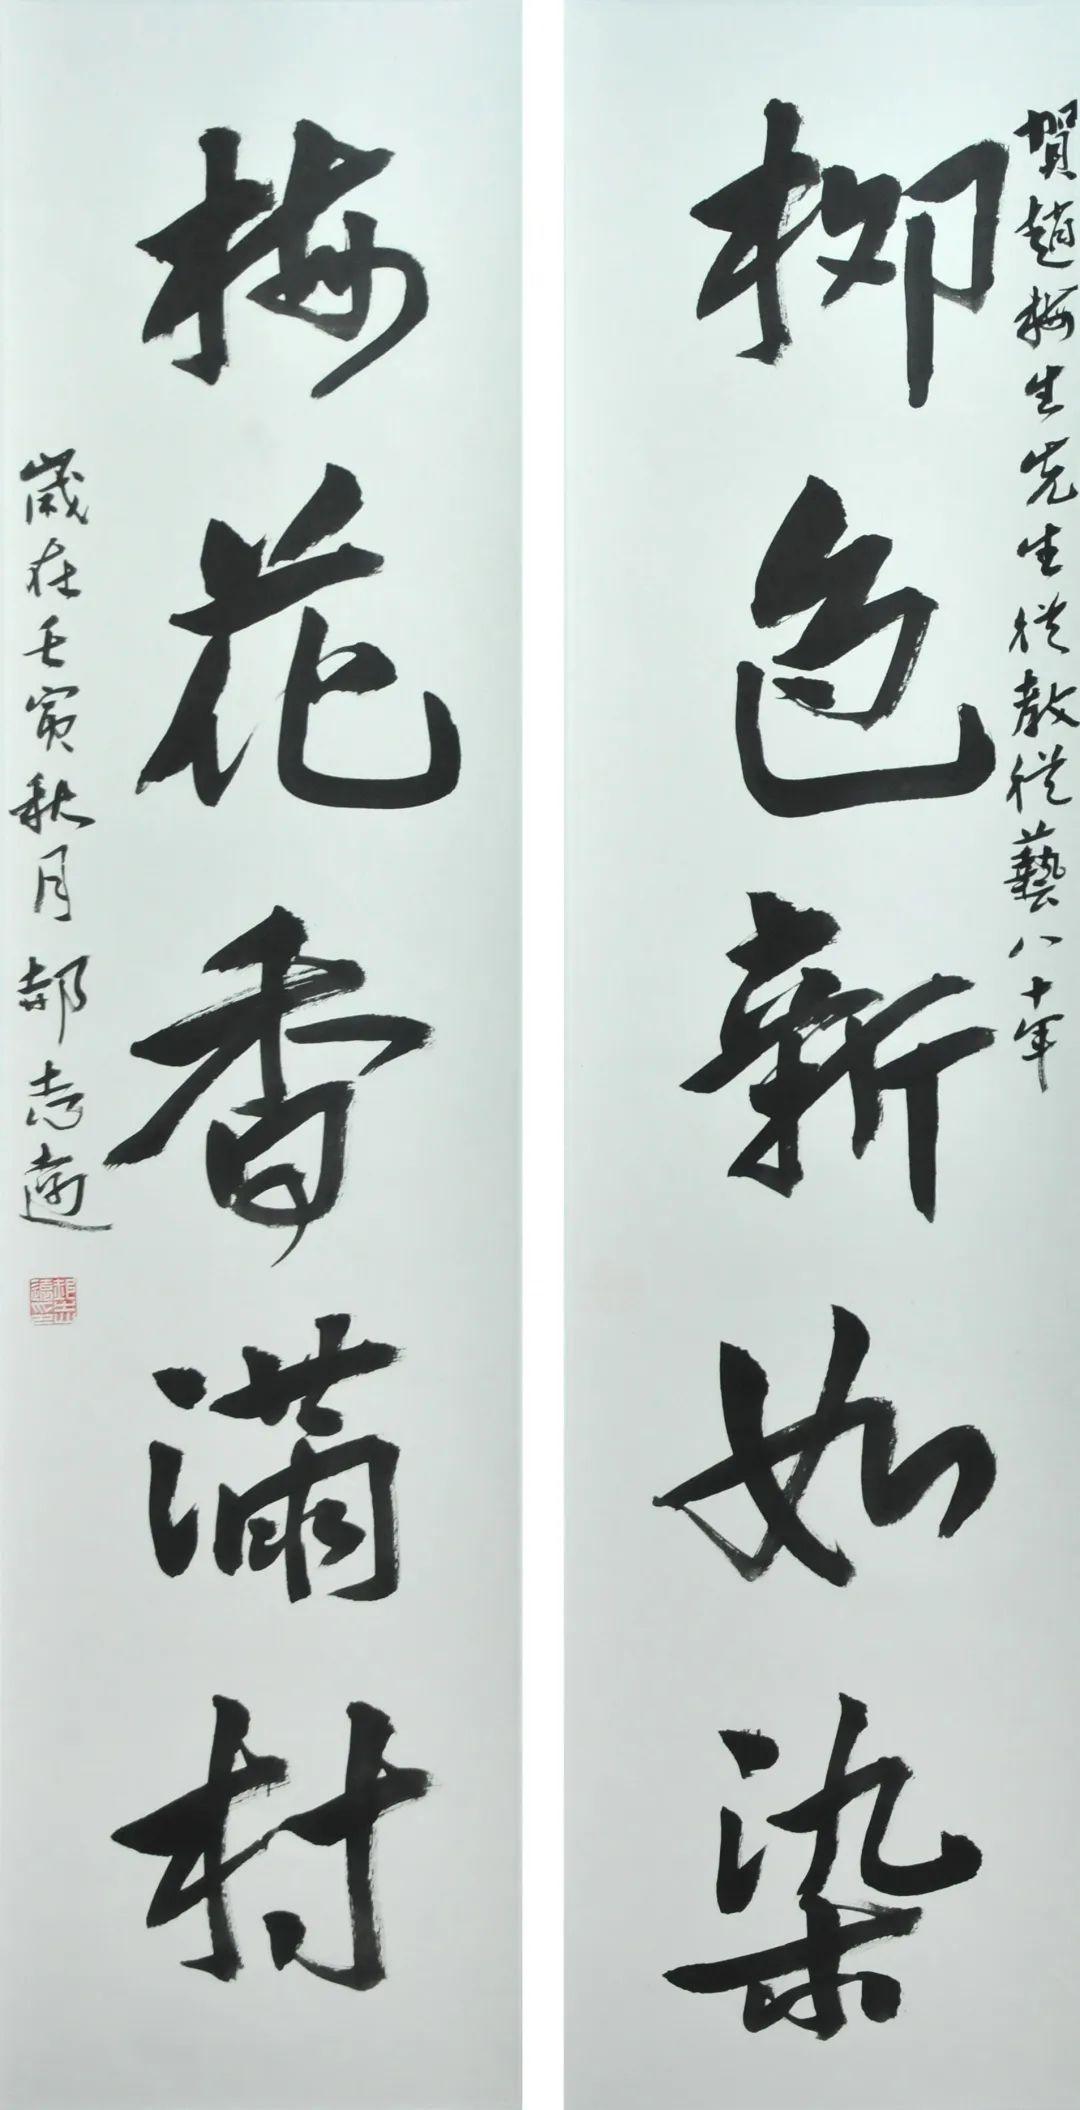 賀趙梅生先生從教從藝八十年
柳色新如染
梅花香滿村
歲在壬寅秋月郝志